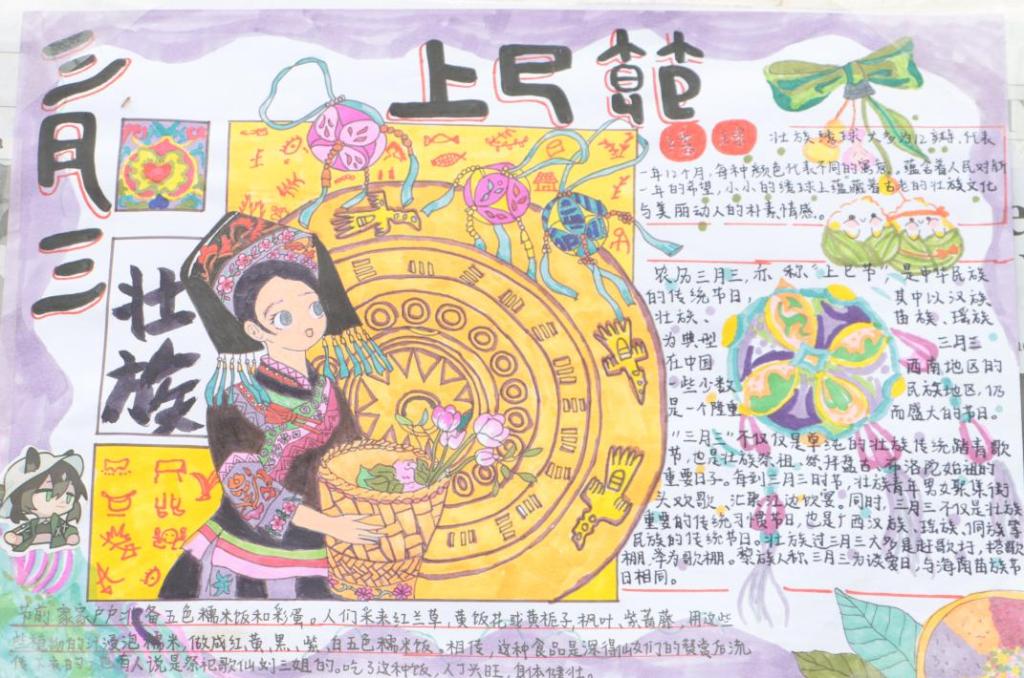 三月三
上巳节
壮族
绣球
壮族绣球大多为12瓣,代表
一年12个月,每种颜色代表不同的寓意,蕴含着人民对新
一年的希望,小小的绣球上蕴藏着古老的壮族文化
与美丽动人的朴素情感。
农历三月三,亦称"上巳节",是中华民族
的传统节日,其中以汉族
壮族、苗族、瑶族
为典型 三月三
在中国西南地区的
一些少数民族地区,仍
是一个隆重而盛大的节日。
"三月三"不仅仅是 的壮族传统踏青歌
节,也是壮族祭祖、祭拜盘古、布洛陀始祖的
重要日子。每到三月三时节,壮族青年男女聚集街
头欢歌、汇聚江边饮宴。同时,三月三不仅是壮族
重要的传统习惯节日,也是广西汉族、瑶族、侗族等
民族的传统节日。壮族过三月三大多是赶歌圩,搭歌
棚,举办歌棚。黎族人称三月三为谈爱日,与海南苗族节
日相同。
节前家家户户准备五色糯米饭和彩蛋。人们采来红兰草、黄饭花或黄栀子、枫叶、紫蕃藤,用这些
些植物的汁浸泡糯米,做成红、黄、黑、紫、白五色糯米饭。相传,这种食品是深得仙女们的赞赏后流
传下来的;也有人说是祭祀歌仙刘三姐的。吃了这种饭,人丁兴旺,身体健壮。